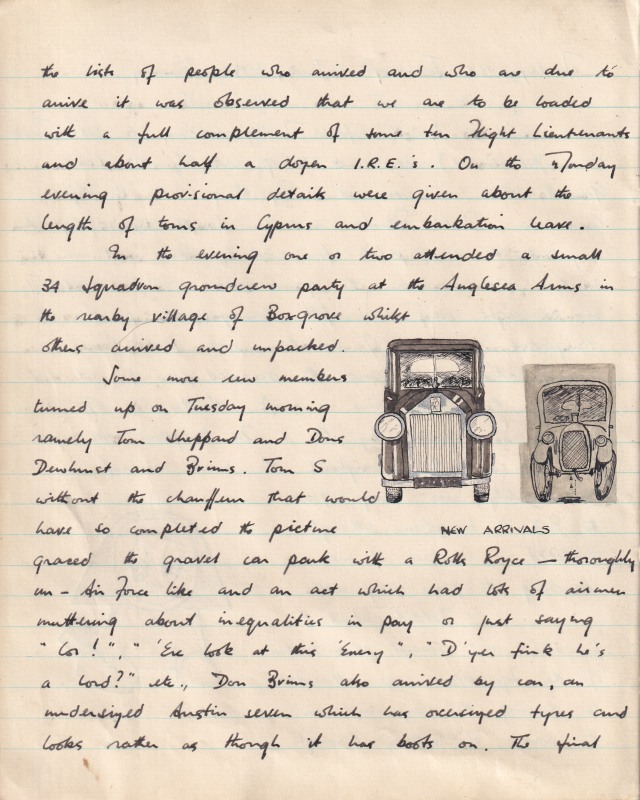 the lists of people who arrived and who are due to
arrive it was observed that we are to be loaded
with a full complement of some ten Flight Lieutenants
and about half a dozen I.R.E.'s. On the Monday
evening provisional details were given about the
length of tours in Cyprus and embarkation leave.
In the evening one or two attended a small
34 Squadron groundcrew party at the Anglesea Arms in
the nearby village of Boxgrove whilst
others arrived and unpacked.
Some more new members
turned up on Tuesday morning
namely Tom Sheppard and Dons
Dewhurst and Brims. Tom S
without the chauffeur that would
have so completed the picture
NEW ARRIVALS
graced the gravel car park with a Rolls Royce — thoroughly
un-Air Force like and an act which had lots of airmen
muttering about inequalities in pay or just saying
"Cor!", "'Ere look at this 'Enery", "D'yer fink he's
a lord?" etc., Don Brims also arrived by car, an
undersized Austin seven which has oversized tyres and
looks rather as though it has boots on. The final